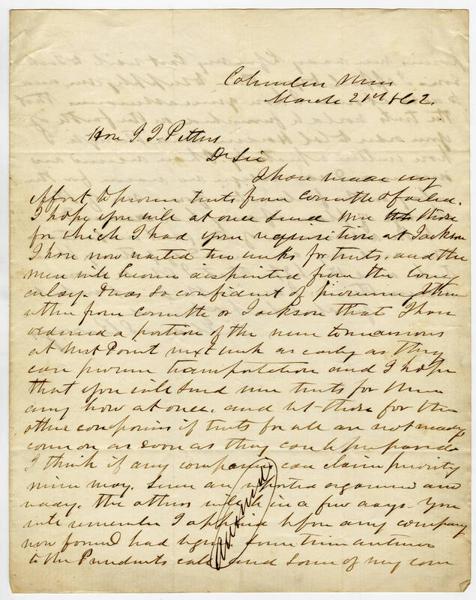 Columbus Miss
March 21st 1862.
Hon J. J. Pettus
Dr Sir
I have made my
effort to procure tents from Corinth & failed.
I hope you will at once send me those
for which I had your requisition at Jackson
I have now waited two weeks for tents, and the
men will become dispirited from the long
delay. I was so confident of procuring them
either from Corinth or Jackson that I have
ordered a portion of the men to rendezvous
at West Point next week as early as they
can procure transportation and I hope
that you will send me tents for them
any how at once. and let those for the
other companies if tents for all are not ready
come on as soon as they can be prepared
I think if any company can claim priority
mine may. Seven are reported organized and
ready. the others will be in a few days. You
will remember I applied before any company
now formed had been some time anterior
to the Presidents call and some of my com
Answered